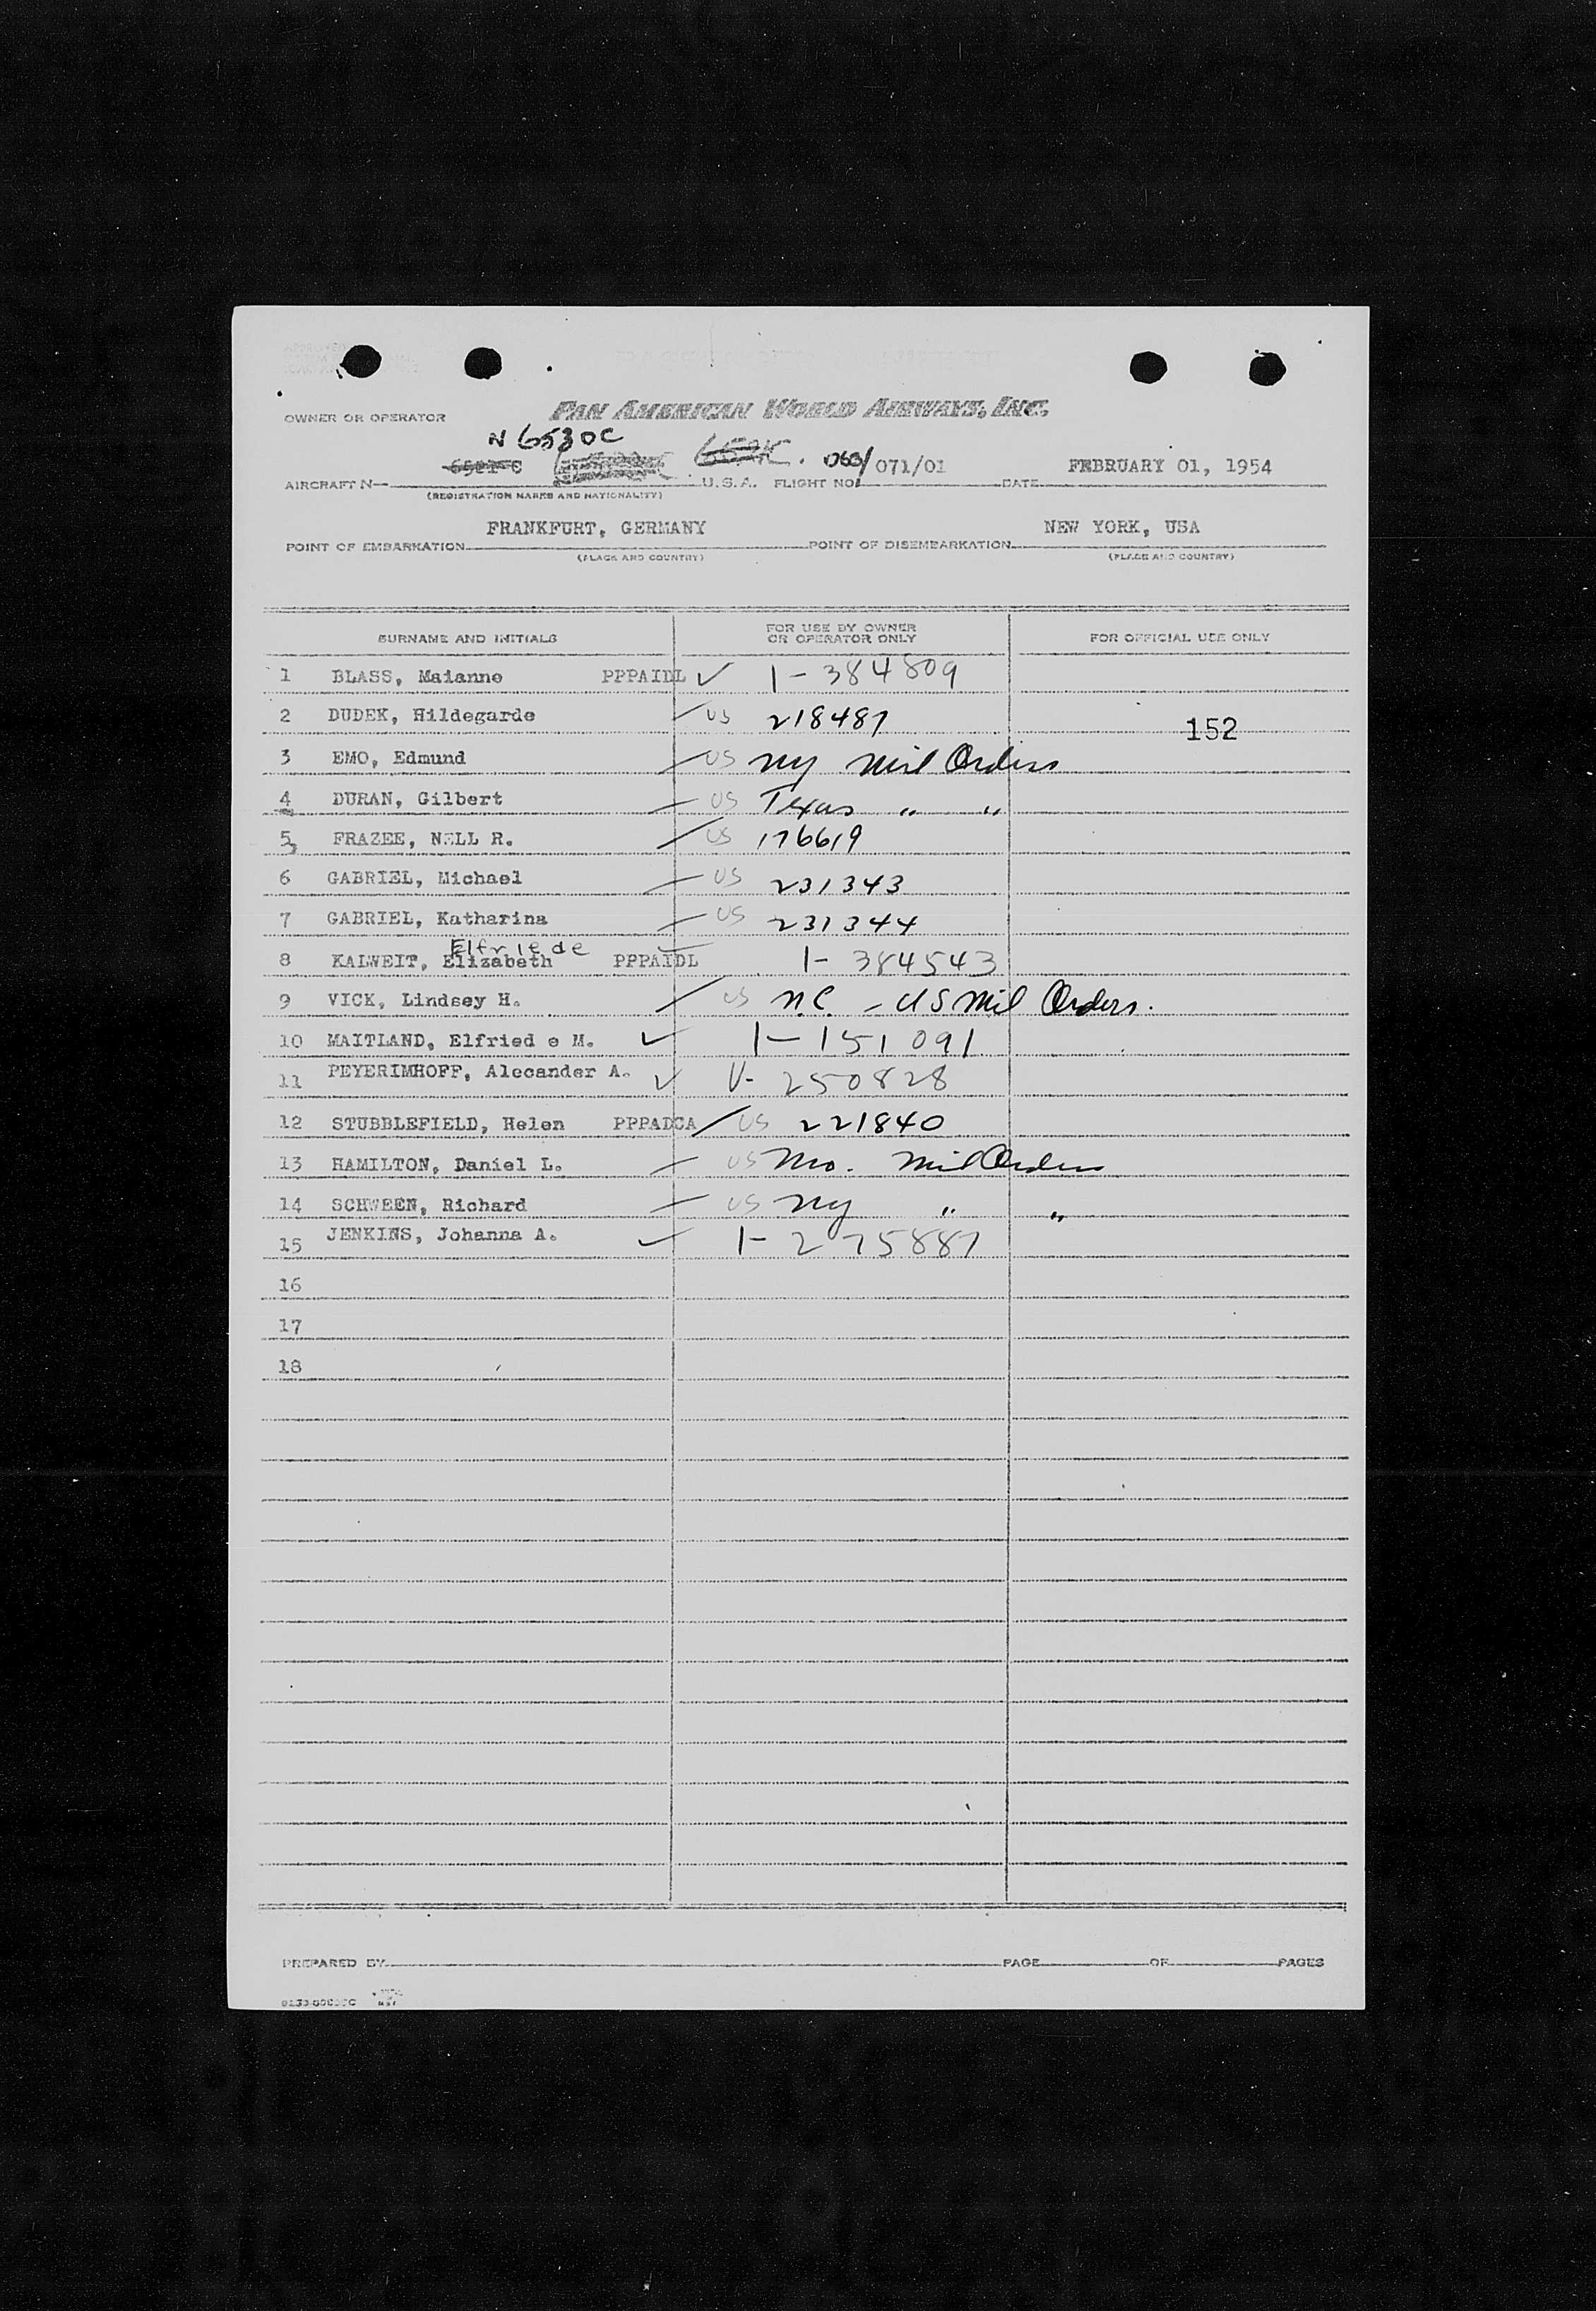 OWNER OR OPERATOR PAN AMERICAN WORLD AIRWAYS, INC.
N 6530C
AIRCRAFT N- U.S.A. FLIGHT NO. 060/ 071/01 DATE FEBRUARY 01, 1954
(REGISTRATION MARKS AND NATIONALITY)
POINT OF EMBARKATION FRANKFURT, GERMANY POINT OF DISEMBARKATION NEW YORK, USA
(PLACE AND COUNTRY) (PLACE AND COUNTRY)
SURNAME AND INITIALS FOR USE BY OWNER OR OPERATOR ONLY FOR OFFICIAL USE ONLY
1 BLASS, Maianne PPPAIDL ✓ 1-384809
2 DUDEK, Hildegarde US 218487
152
3 EMO, Edmund US NY Mil Orders
4 DURAN, Gilbert US Texas " "
5 FRAZEE, NELL R. US 176619
6 GABRIEL, Michael US 231343
7 GABRIEL, Katharina US 231344
Elfriede
8 KALWEIT, Elizabeth PPPAIDL 1-384543
9 VICK, Lindsey H. US N.C. - US Mil Orders.
10 MAITLAND, Elfried e M. ✓ 1-151091
11 PEYERIMHOFF, Alecander A. ✓ V-250828
12 STUBBLEFIELD, Helen PPPADCA US 221840
13 HAMILTON, Daniel L. US Mo. Mil Orders
14 SCHWEEN, Richard US NY " "
15 JENKINS, Johanna A. ✓ 1-275887
16
17
18
PREPARED BY PAGE OF PAGES